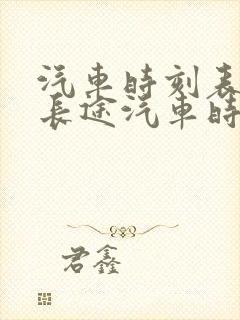 汽車時刻表
長途汽車時
君鑫